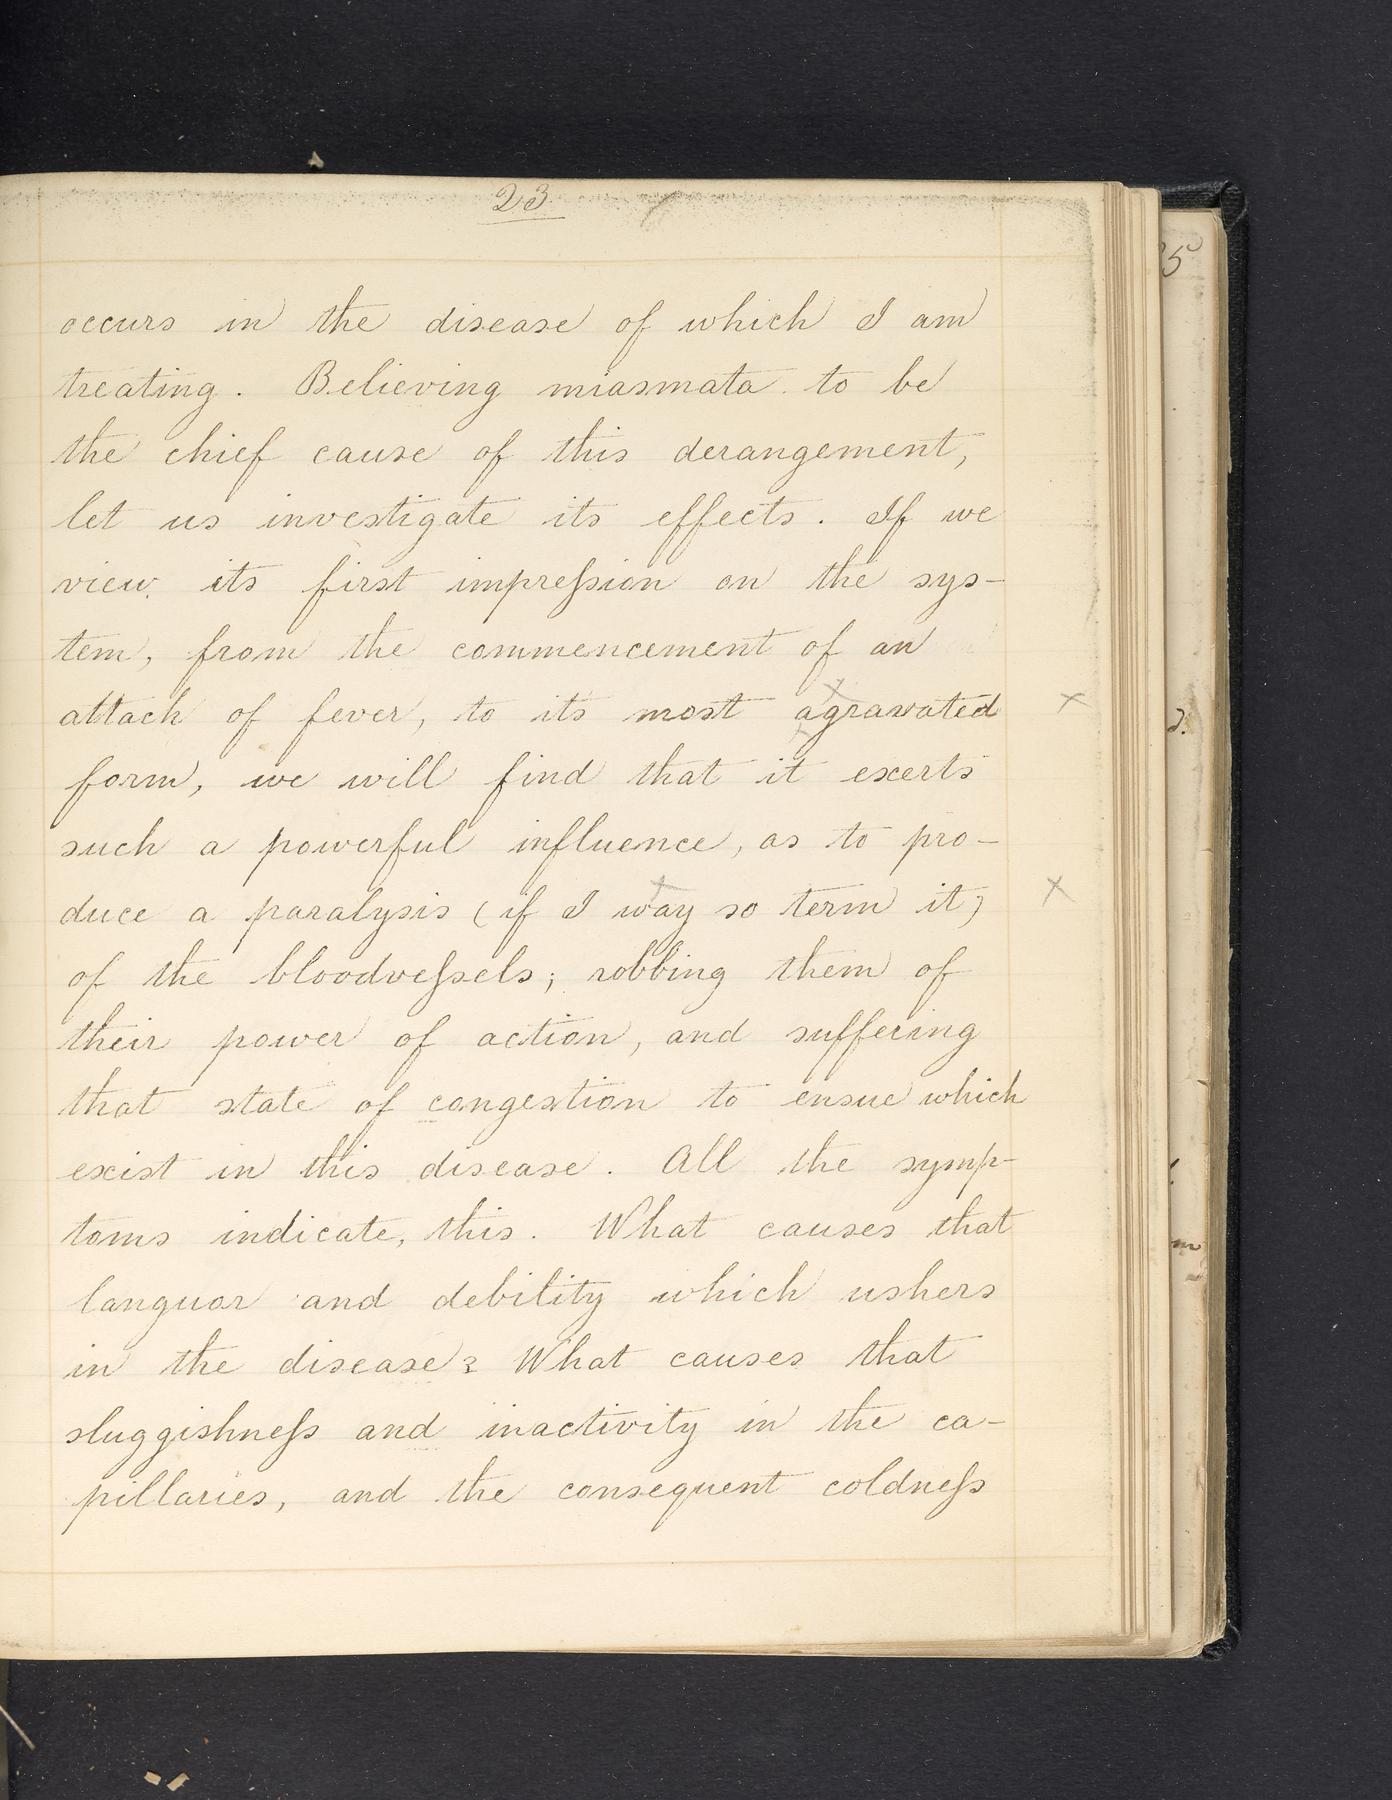 23
occurs in the disease of which I am
treating. Believing miasmata to be
the chief cause of this derangement,
let us investigate its effects. If we
view its first impreſsion on the sys-
tem, from the commencement of an
attack of fever, to its most agravated
form, we will find that it exerts
such a powerful influence, as to pro-
duce a paralysis (if I way so term it)
of the bloodveſsels; robbing them of
their power of action, and suffering
that state of congestion to ensue which
exist in this disease. All the symp-
toms indicate, this. What causes that
languor and debility which ushers
in the disease? What causes that
sluggishneſs and inactivity in the ca-
pillaries, and the consequent coldneſs